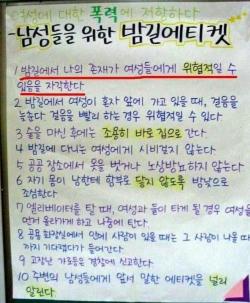 여성에 대한 폭력에 저항하다
-남성들을 위한 밤길에티켓
1 밤길에서 나의 존재가 여성들에게 위협적일 수
있음을 자각한다
2 밤길에서 여성이 혼자 앞에 가고 있을 때, 걸음을
늦춘다. 걸음을 빨리 하는 경우 위협적일 수 있다
3 술을 마신 후에는 조용히 바로 집으로 간다
4 밤길에 다니는 여성에게 시비걸지 않는다
5 공공장소에서 옷을 벗거나 노상방뇨하지 않는다
6 자기 몸이 남한테 함부로 닿지 않도록 밤낮으로
조심한다
7 엘리베이터를 탈 때, 여성과 둘이 타게 될 경우 여성을
먼저 올라가게 하고 나중에 탄다
8 공용화장실에서 안에 사람이 있을 때는 그 사람이 나올 때
까지 기다렸다가 들어간다
9 고장난 가로등을 경찰에 신고한다
10 주변의 남성들에게 앞서 말한 에티켓을 널리
알린다